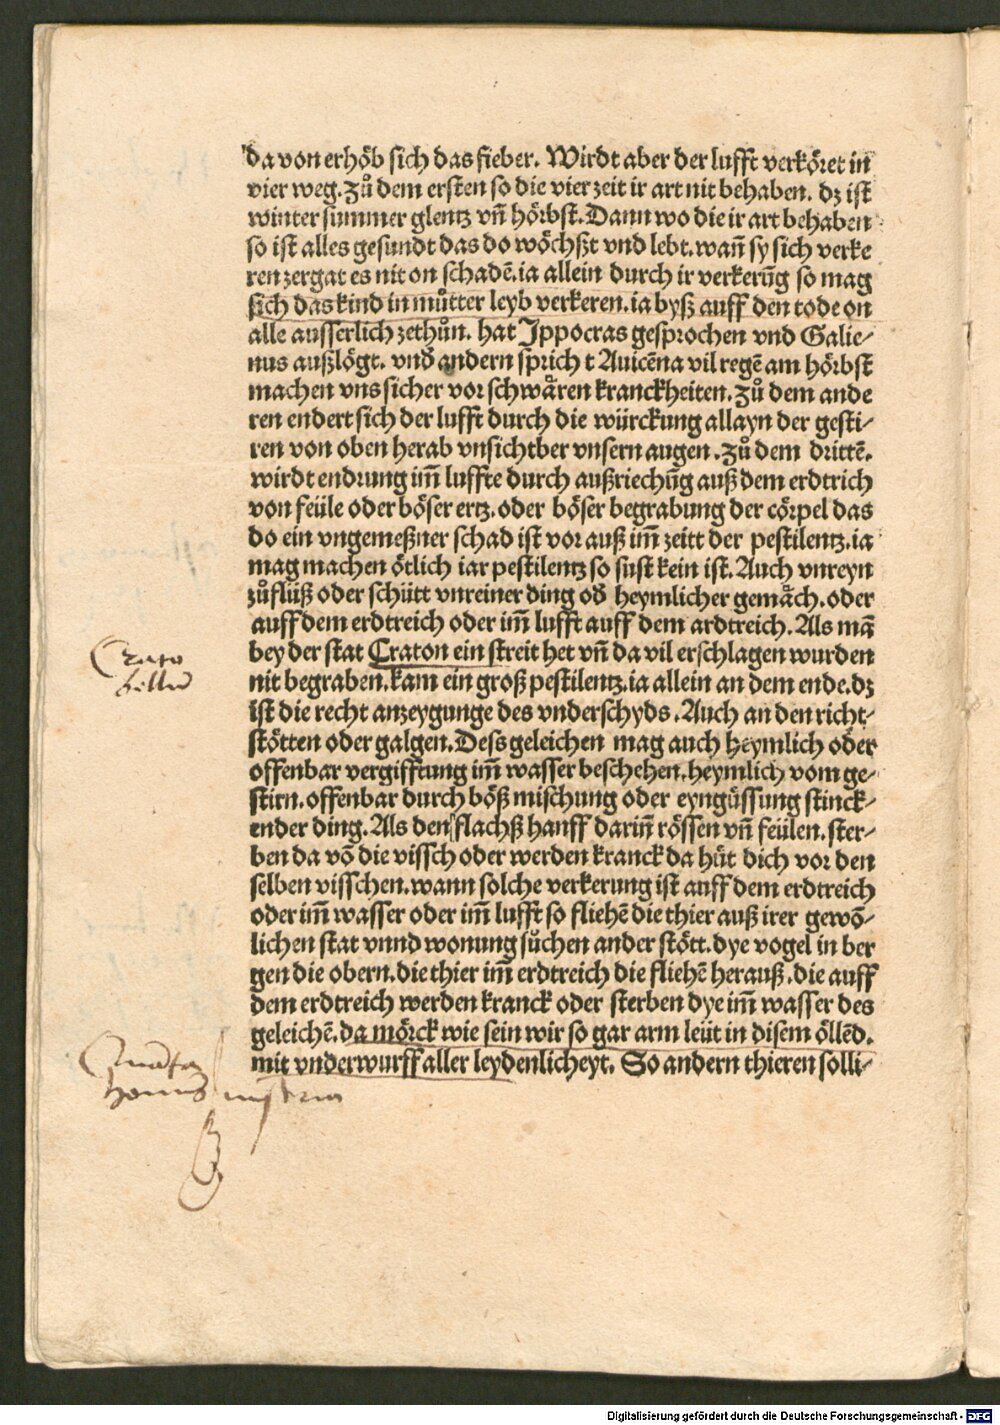 da von erhöb sich das fieber. Wirdt aber der lufft verköret in
vier weg. Zů dem ersten so die vier zeit ir art nit behaben. dz ist
winter summer glentz vñ hörbst. Dann wo die ir art behaben
so ist alles gesundt das do wöchßt vnd lebt. wañ sy sich verke
ren zergat es nit on schadē. ia allein durch ir verkerūg so mag
sich das kind in můtter leyb verkeren. ia byß auff den tode on
alle ausserlich zethůn. hat Ippocras gesprochen vnd Galie⸗
nus außlögt. vnd andern sprich t Auicēna vil regē am hörbst
machen vns sicher vor schwåren kranckheiten. Zů dem ande
ren endert sich der lufft durch die würckung allayn der gesti⸗
ren von oben herab vnsichtber vnsern augen. Zů dem drittē.
wirdt endrung im̄ luffte durch außriechūg auß dem erdtrich
von feüle oder böser ertz. oder böser begrabung der cörpel das
do ein vngemeßner schad ist vor auß im̄ zeitt der pestilentz. ia
mag machen ötlich iar pestilentz so sust kein ist. Auch vnreyn
zůflüß oder schütt vnreiner ding od̕ heymlicher gemåch. oder
auff dem erdtreich oder im̄ lufft auff dem ardtreich. Als mā
bey der stat Craton ein streit het vñ da vil erschlagen wurden
nit begraben. kam ein groß pestilentz. ia allein an dem ende. dz
ist die recht anzeygunge des vnderschyds. Auch an den richt⸗
stötten oder galgen. Dess geleichen mag auch heymlich oder
offenbar vergifftung im̄ wasser beschehen. heymlich vom ge⸗
stirn. offenbar durch böß mischung oder eyngüssung stinck⸗
ender ding. Als den flachß hanff darin̄ rössen vñ feülen. ster⸗
ben da vō die vissch oder werden kranck da hüt dich vor den
selben visschen. wann solche verkerung ist auff dem erdtreich
oder im̄ wasser oder im̄ lufft so fliehē die thier auß irer gewō⸗
lichen stat vnnd wonung sůchen ander stött. dye vogel in ber
gen die obern. die thier im̄ erdtreich die fliehē herauß. die auff
dem erdtreich werden kranck oder sterben dye im̄ wasser des
geleichē. da mörck wie sein wir so gar arm leüt in disem öllēd.
mit vnderwurff aller leydenlicheyt. So andern thieren solli⸗
Digitalisierung gefördert durch die Deutsche Forschungsgemeinschaft - DFG